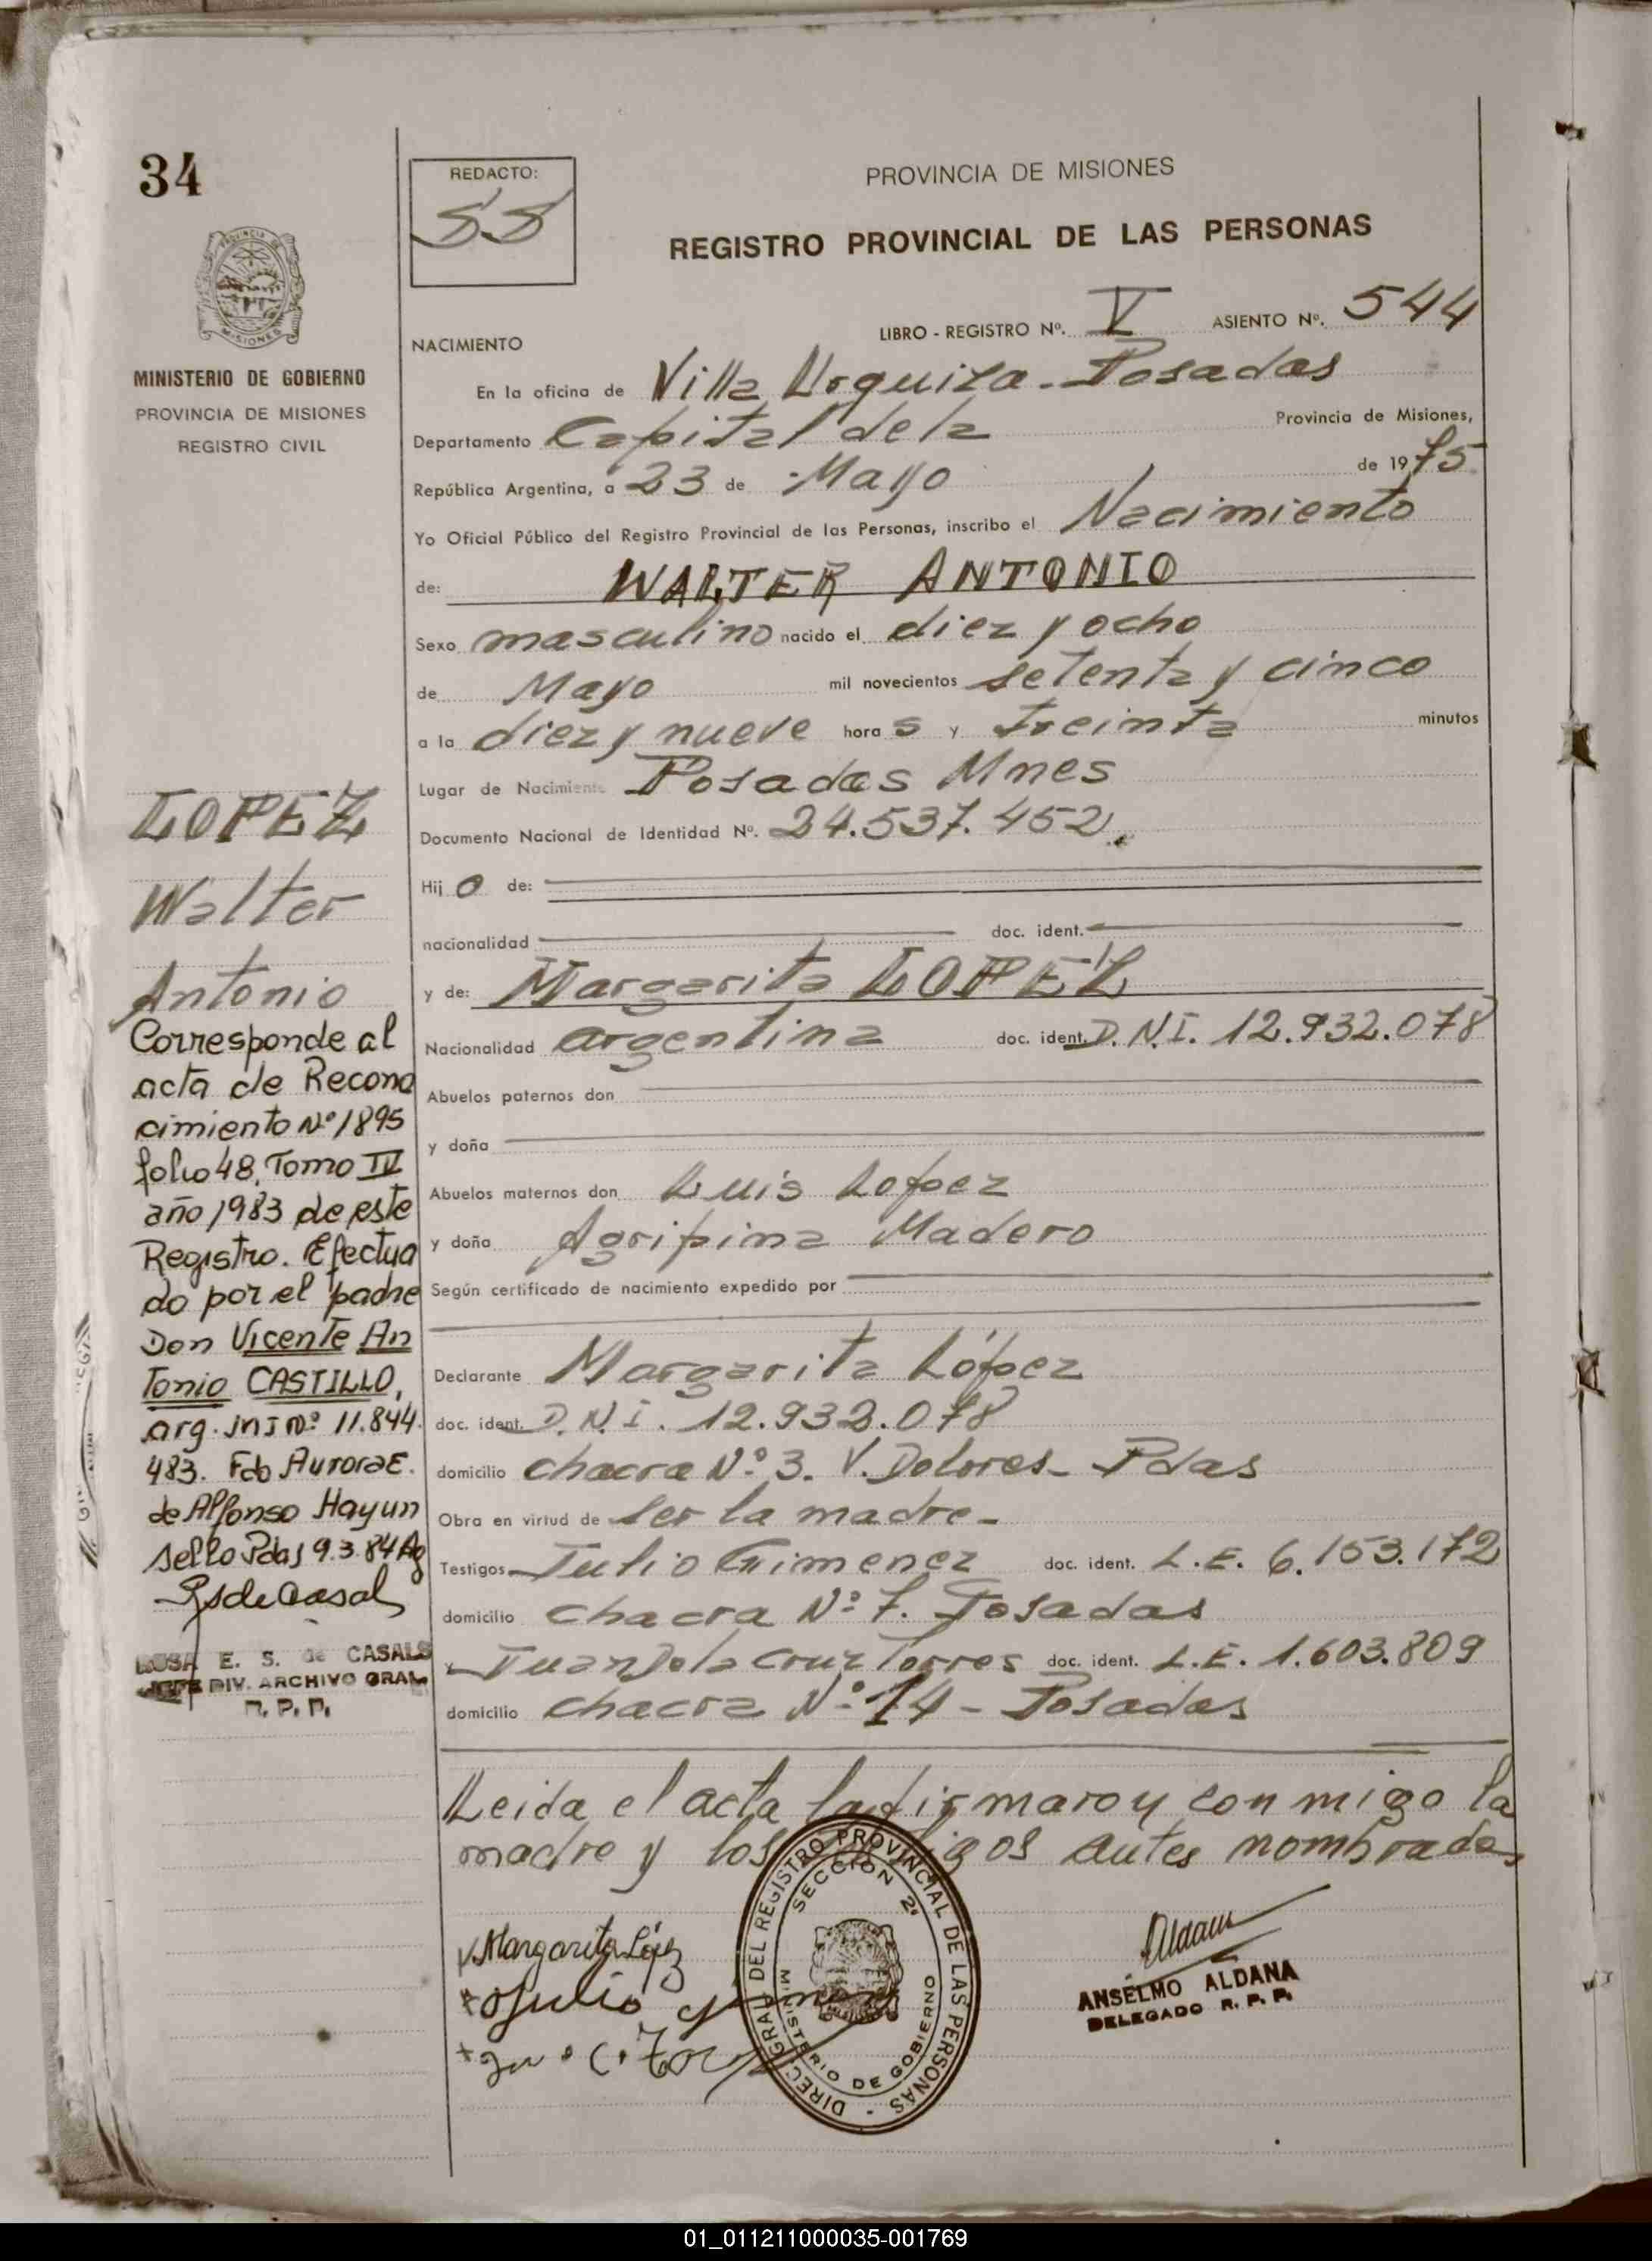 34
REDACTO:
SS
PROVINCIA DE MISIONES
REGISTRO PROVINCIAL DE LAS PERSONAS
PROVINCIA DE
MISIONES
MINISTERIO DE GOBIERNO
PROVINCIA DE MISIONES
REGISTRO CIVIL
LIBRO - REGISTRO Nº. V ASIENTO Nº. 544
NACIMIENTO
En la oficina de Villa Urquiza - Posadas
Departamento Capital de la Provincia de Misiones,
República Argentina, a 23 de Mayo de 1975
Yo Oficial Público del Registro Provincial de las Personas, inscribo el Nacimiento
de: WALTER ANTONIO
Sexo masculino nacido el diez y ocho
de Mayo mil novecientos setenta y cinco
a la diez y nueve hora s y treinta minutos
Lugar de Nacimiento Posadas Mnes
Documento Nacional de Identidad Nº. 24.537.452.
Hij o de:
nacionalidad doc. ident.
y de: Margarita LOPEZ
Nacionalidad argentina doc. ident. D.N.I. 12.932.078
Abuelos paternos don
y doña
Abuelos maternos don Luis Lopez
y doña Agripina Madero
Según certificado de nacimiento expedido por
Declarante Margarita López
doc. ident. D.N.I. 12.932.078
domicilio chacra Nº 3. V. Dolores - Pdas
Obra en virtud de ser la madre -
Testigos Julio Gimenez doc. ident. L.E. 6.153.172
domicilio chacra Nº 7. Posadas
y Juan De la Cruz Torres doc. ident. L.E. 1.603.809
domicilio chacra Nº 14 - Posadas
Leida el acta la firmaron con migo la
madre y los testigos antes nombrados
LOPEZ
Walter
Antonio
Corresponde al
acta de Recono
cimiento Nº 1895
folio 48, Tomo IV
año 1983 de este
Registro. Efectua
do por el padre
Don Vicente An
tonio CASTILLO,
arg. Nº 11.844.
483. Fdo Aurora E.
de Alfonso Hay un
sello Pdas 9.3.84
ROSA E. S. de CASALS
JEFE DIV. ARCHIVO GRAL
R. P. P.
Margarita López
Julio
DIREC. GRAL DEL REGISTRO PROVINCIAL DE LAS PERSONAS -
SECCION 2ª
MINISTERIO DE GOBIERNO
ANSELMO ALDANA
DELEGADO R. P. P.
01_011211000035-001769